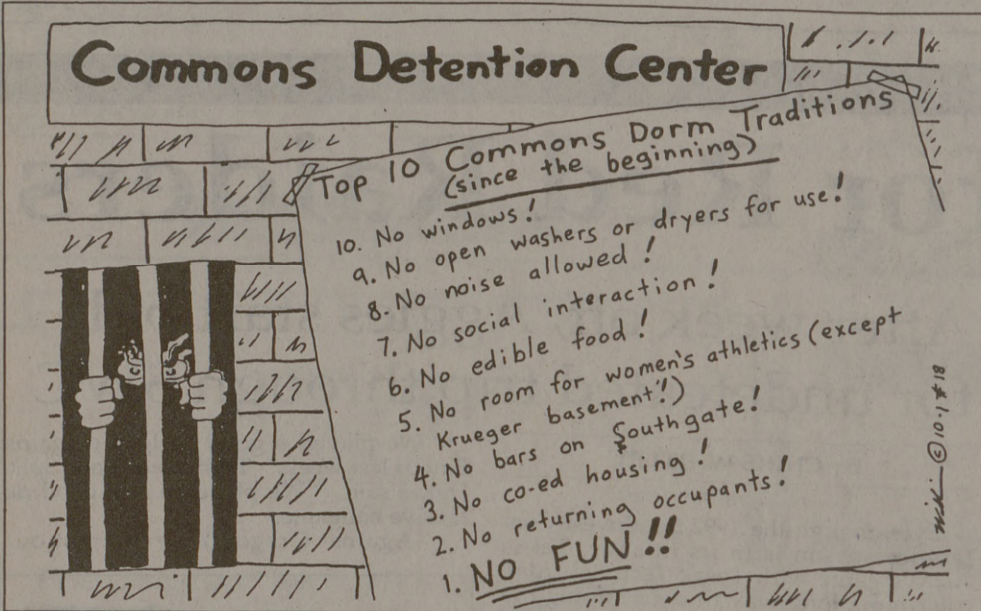 Commons Detention Center
Top 10 Commons Dorm Traditions
(since the beginning)
10. No windows!
9. No open washers or dryers for use!
8. No noise allowed!
7. No social interaction!
6. No edible food!
5. No room for women's athletics (except
Krueger basement!)
4. No bars on Southgate!
3. No co-ed housing!
2. No returning occupants!
1. NO FUN!!